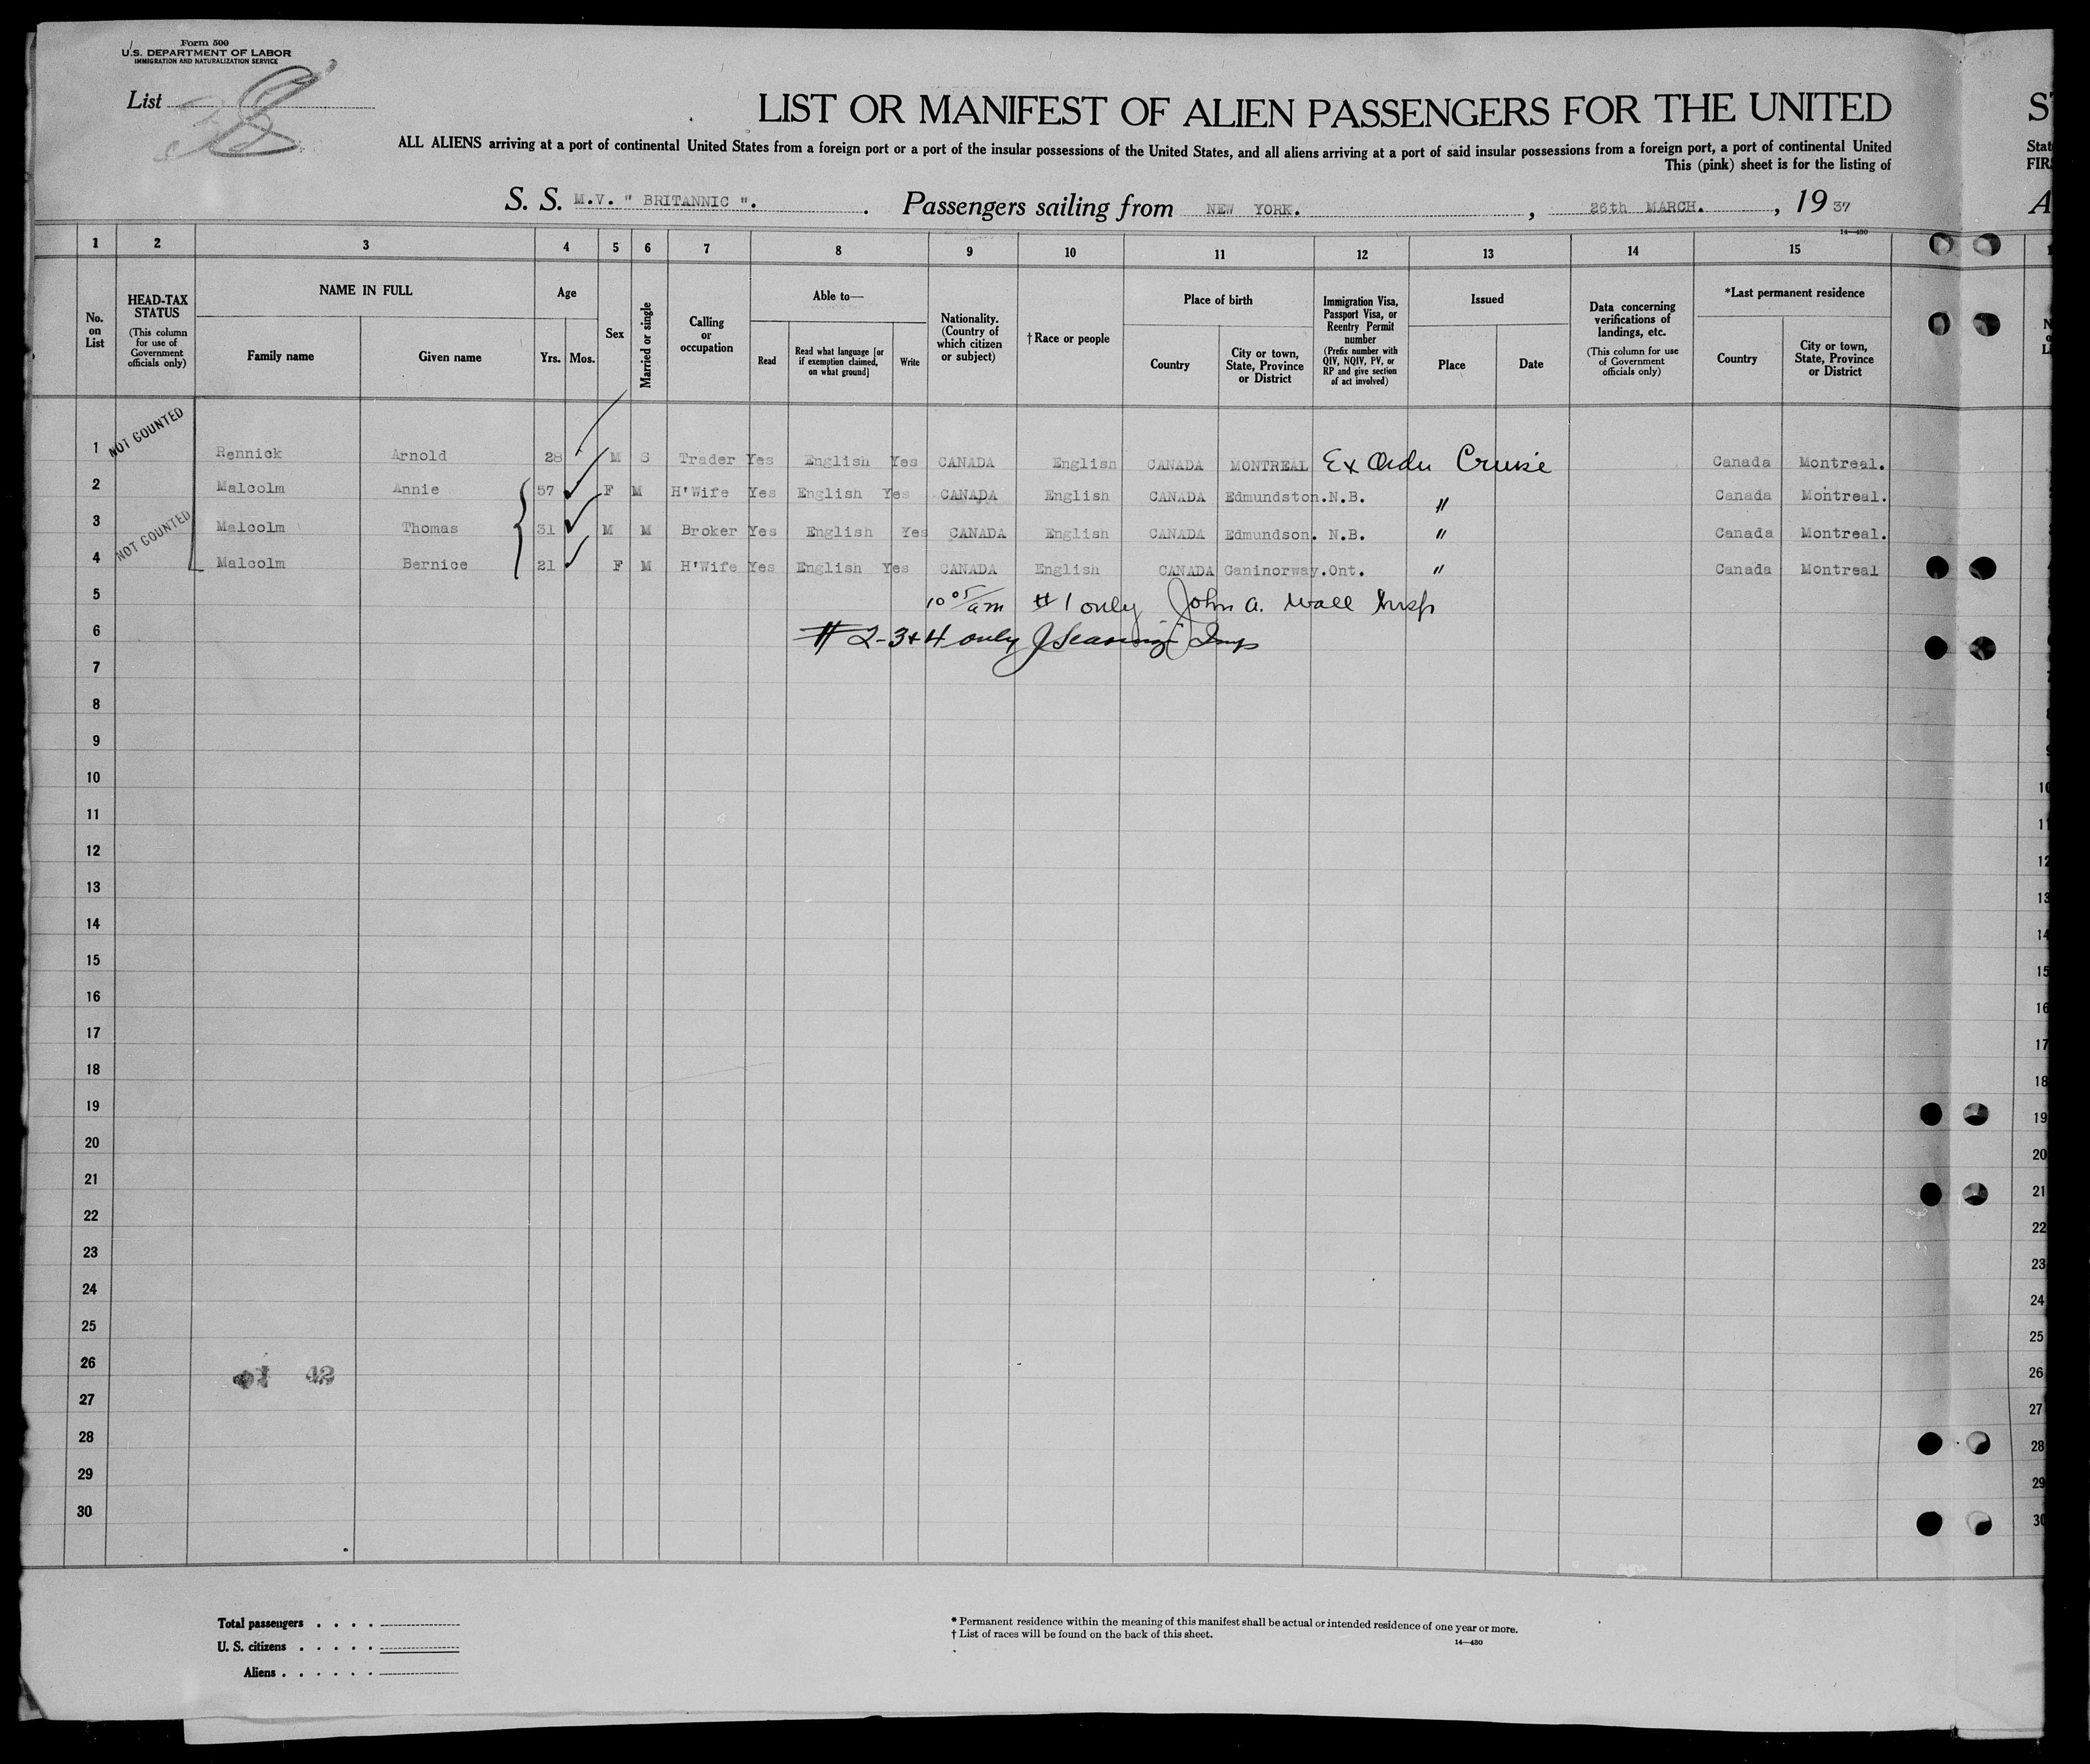 Form 500
U.S. DEPARTMENT OF LABOR
IMMIGRATION AND NATURALIZATION SERVICE
List
LIST OR MANIFEST OF ALIEN PASSENGERS FOR THE UNITED
ALL ALIENS arriving at a port of continental United States from a foreign port or a port of the insular possessions of the United States, and all aliens arriving at a port of said insular possessions from a foreign port, a port of continental United
This (pink) sheet is for the listing of
S. S. M.V. " BRITANNIC ". Passengers sailing from NEW YORK. , 26th MARCH. , 19 37
14—430
1 2 3 4 5 6 7 8 9 10 11 12 13 14 15
No. on List
HEAD-TAX STATUS (This column for use of Government officials only)
NAME IN FULL
Family name Given name
Age
Yrs. Mos.
Sex
Married or single
Calling or occupation
Able to—
Read Read what language [or if exemption claimed, on what ground] Write
Nationality. (Country of which citizen or subject)
†Race or people
Place of birth
Country City or town, State, Province or District
Immigration Visa, Passport Visa, or Reentry Permit number (Prefix number with QIV, NQIV, PV, or RP and give section of act involved)
Issued
Place Date
Data concerning verifications of landings, etc. (This column for use of Government officials only)
*Last permanent residence
Country City or town, State, Province or District
NOT COUNTED
1 Rennick Arnold 28 M S Trader Yes English Yes CANADA English CANADA MONTREAL Ex Order Cruise Canada Montreal.
2 Malcolm Annie 57 F M H'Wife Yes English Yes CANADA English CANADA Edmundston.N.B. " Canada Montreal.
NOT COUNTED
3 Malcolm Thomas 31 M M Broker Yes English Yes CANADA English CANADA Edmundson. N.B. " Canada Montreal.
4 Malcolm Bernice 21 F M H'Wife Yes English Yes CANADA English CANADA Ganinorway.Ont. " Canada Montreal
5 10 05/am #1 only John A. Wall Insp
6 # 2-3+4 only Insp
7
8
9
10
11
12
13
14
15
16
17
18
19
20
21
22
23
24
25
26
42
27
28
29
30
Total passengers . . . .
U. S. citizens . . . . .
Aliens . . . . . .
* Permanent residence within the meaning of this manifest shall be actual or intended residence of one year or more.
† List of races will be found on the back of this sheet.
14—430